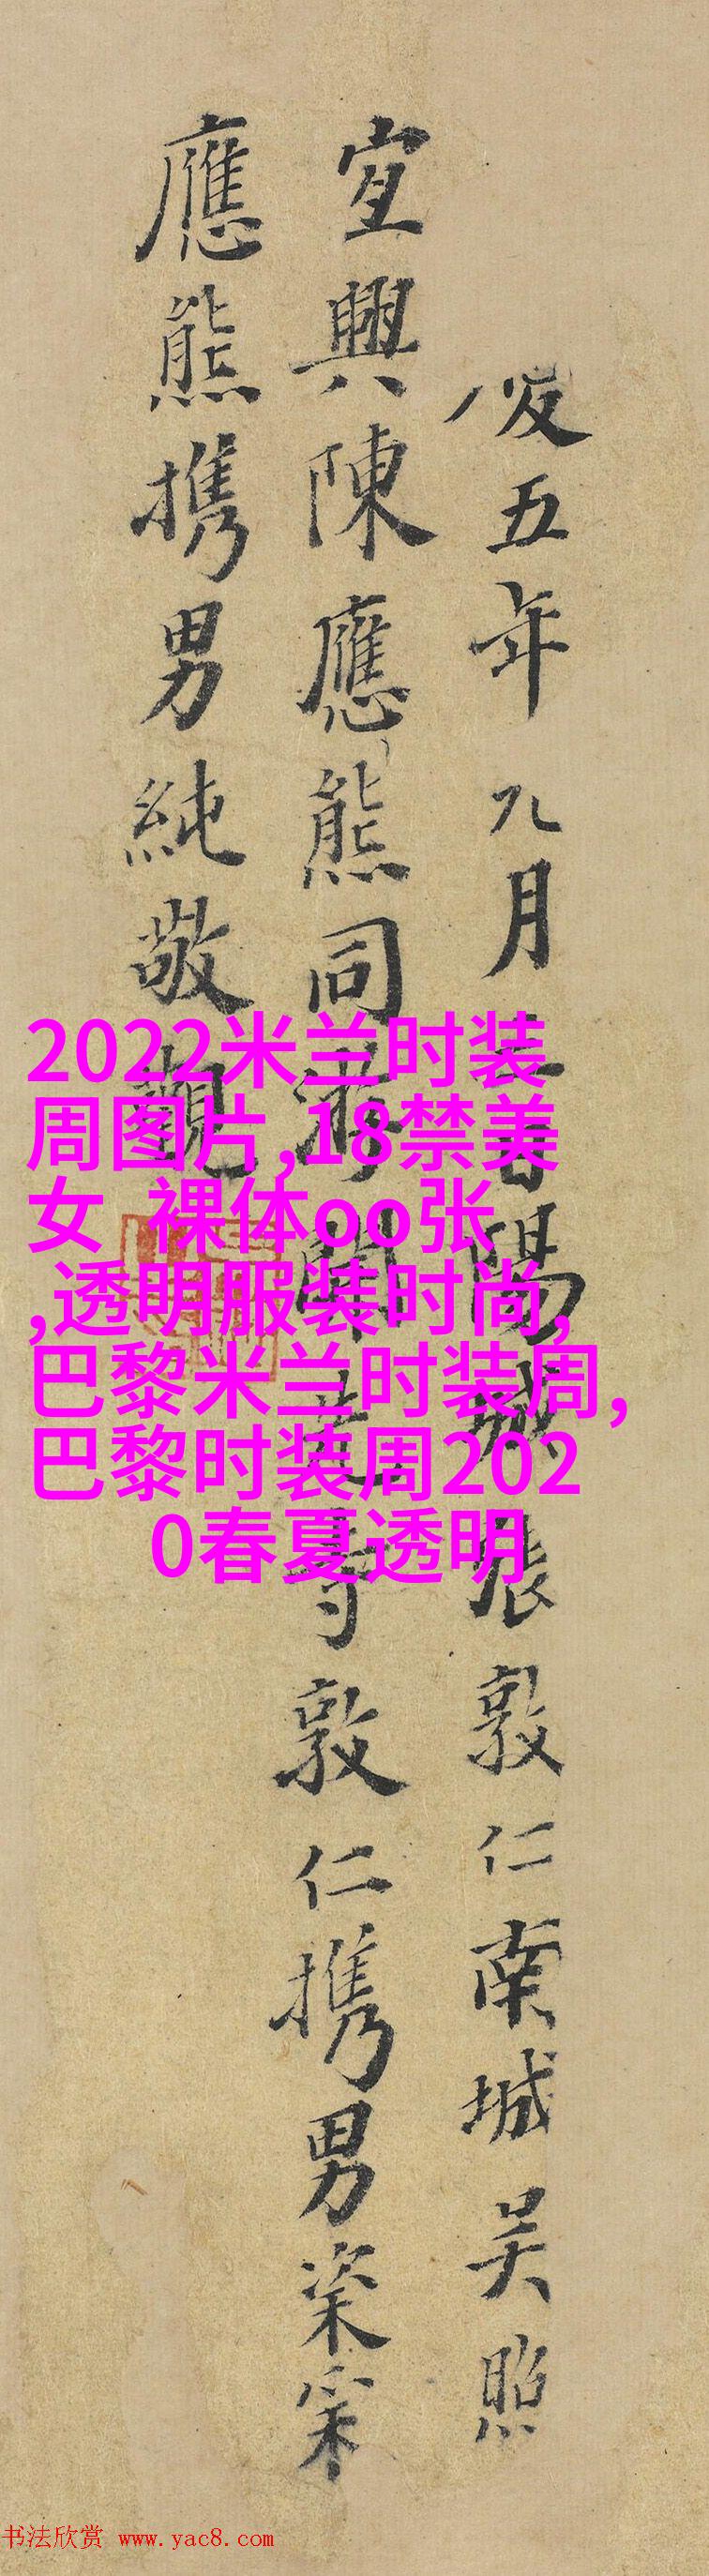 五年九月日陽城張敦仁南城吳照
宜興陳應熊同游寺敦仁携男
應熊携男純敬觀
2022米兰时装
周图片,18禁美
女 裸体oo张
,透明服装时尚,
巴黎米兰时装周,
巴黎时装周202
0春夏透明
书法欣赏 www.yac8.com